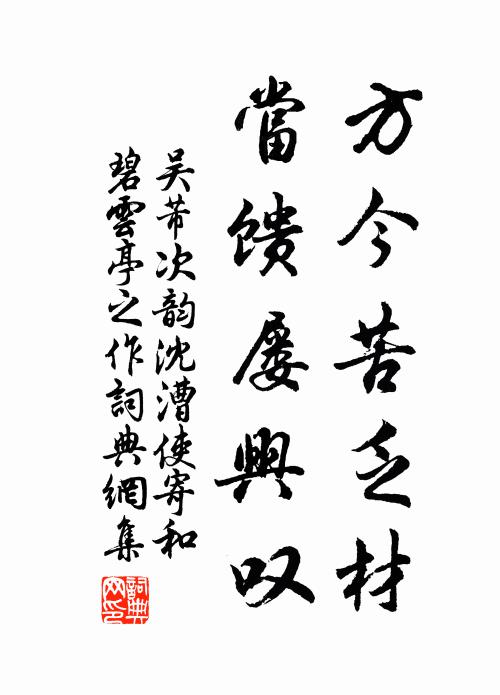 方今苦乏材
當馈屡興叹
吴芾次韵沈漕使寄和
碧雲亭之作詞典網集
詞典
网印